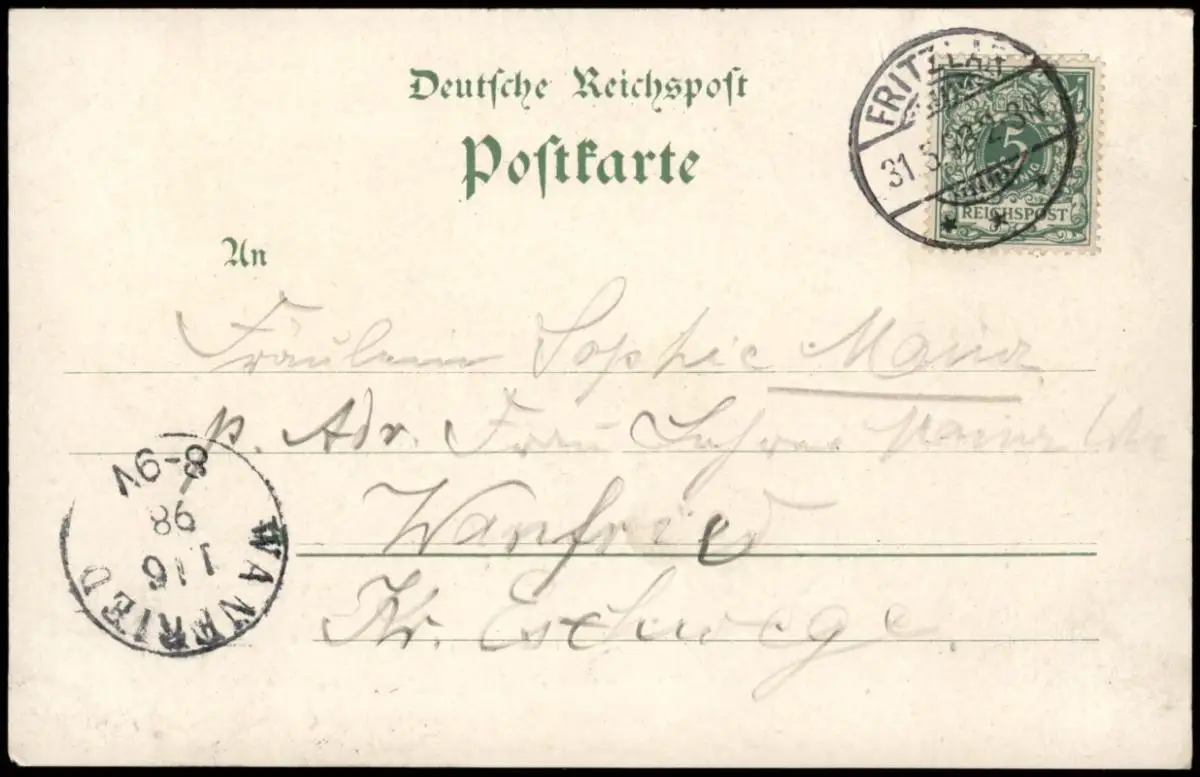 Deutsche Reichspost
Postkarte
FRITZLAR
31.5.98 2-3N
5
REICHSPOST
An
Fräulein Sophie
p. Adr. Frau
Wanfried
Kr. Eschwege.
WANFRIED
1/6
98
8-9V